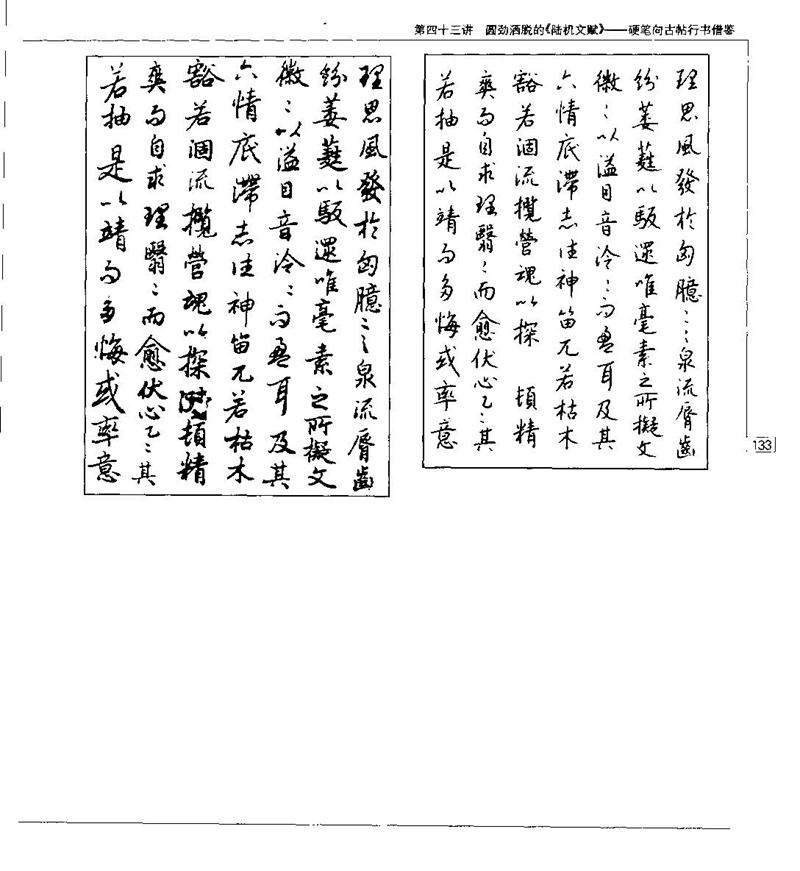 第四十三讲　圆劲洒脱的《陆机文赋》——硬笔向古帖行书借鉴
理思風發於匈臆〻之泉流脣齒
紛葳蕤以馺遝唯毫素之所擬文
徽〻以溢目音泠〻而盈耳及其
六情底滯志往神留兀若枯木
豁若涸流攬營魂以探頓精
爽而自求理翳〻而愈伏心乙〻其
若抽是以靖而多悔或率意
理思風發於匈臆〻之泉流脣齒
紛葳蕤以馺遝唯毫素之所擬文
徽〻以溢目音泠〻而盈耳及其
六情底滯志往神留兀若枯木
豁若涸流攬營魂以探　頓精
爽而自求理翳〻而愈伏心乙〻其
若抽是以靖而多悔或率意
133